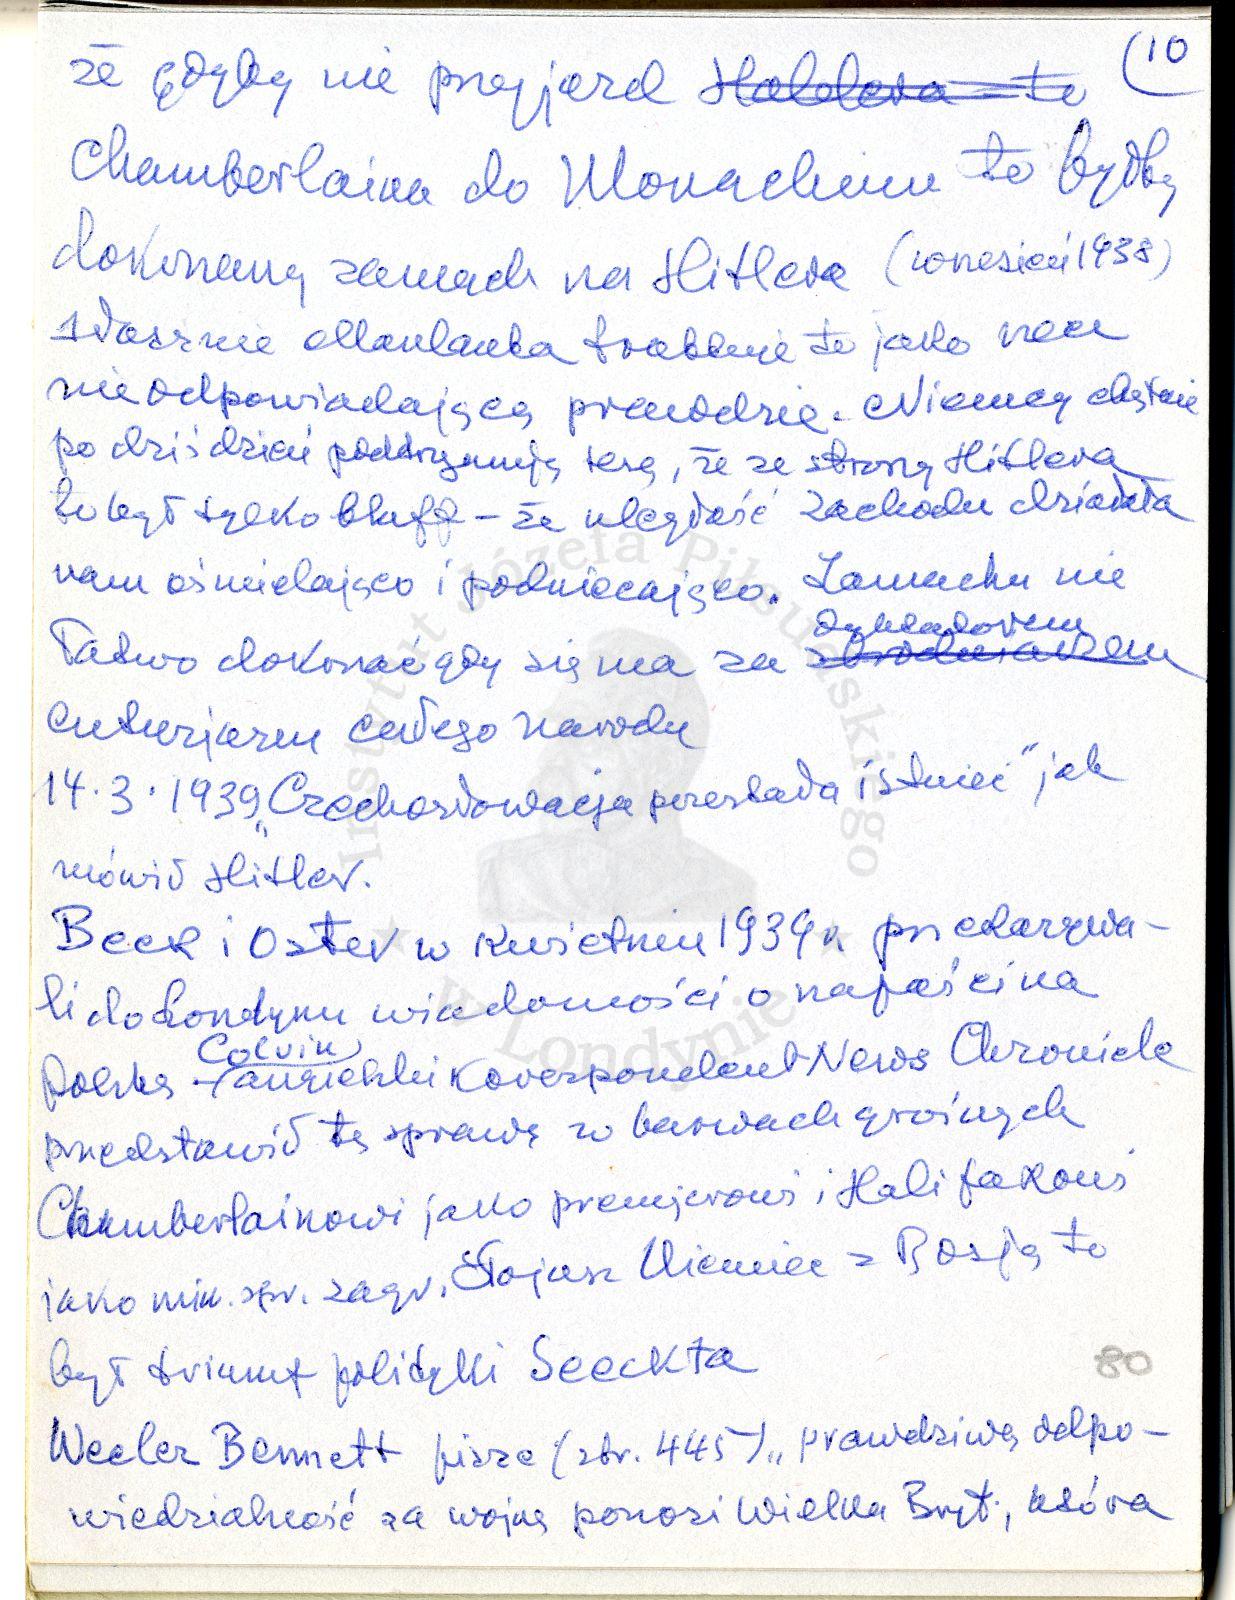 (10
że gdyby nie przyjazd Haldera - to
Chamberlaina do Monachium to byłby
dokonany zamach na Hitlera (wrzesień 1938)
słusznie traktuje to jako
nieodpowiadającą prawdzie. Niemcy chętnie
po dziś dzień podtrzymują tezę, że ze strony Hitlera
to był tylko bluff - że uległość zachodu działała
nań ośmielająco i podniecająco. Zamachu nie
dyktatorem
łatwo dokonać gdy się ma za zbrodniarzem
entuzjazm całego narodu
14.3.1939 „Czechosłowacja przestała istnieć" jak
mówił Hitler.
Beck i Oster w kwietniu 1939 r. przekazywa-
li do Londynu wiadomości o napaści na
Colvin
Polskę - angielski korespondent News Chronicle
przedstawił tę sprawę w barwach groźnych
Chamberlainowi jako premjerowi i Halifaxowi
jako min. spr. zagr. Sojusz Niemiec z Rosją to
był triumf polityki Seeckta
80
Weeler Bennett pisze (str. 445) „prawdziwą odpo-
wiedzialność za wojnę ponosi Wielka Bryt., która
Instytut Józefa Piłsudskiego
w Londynie